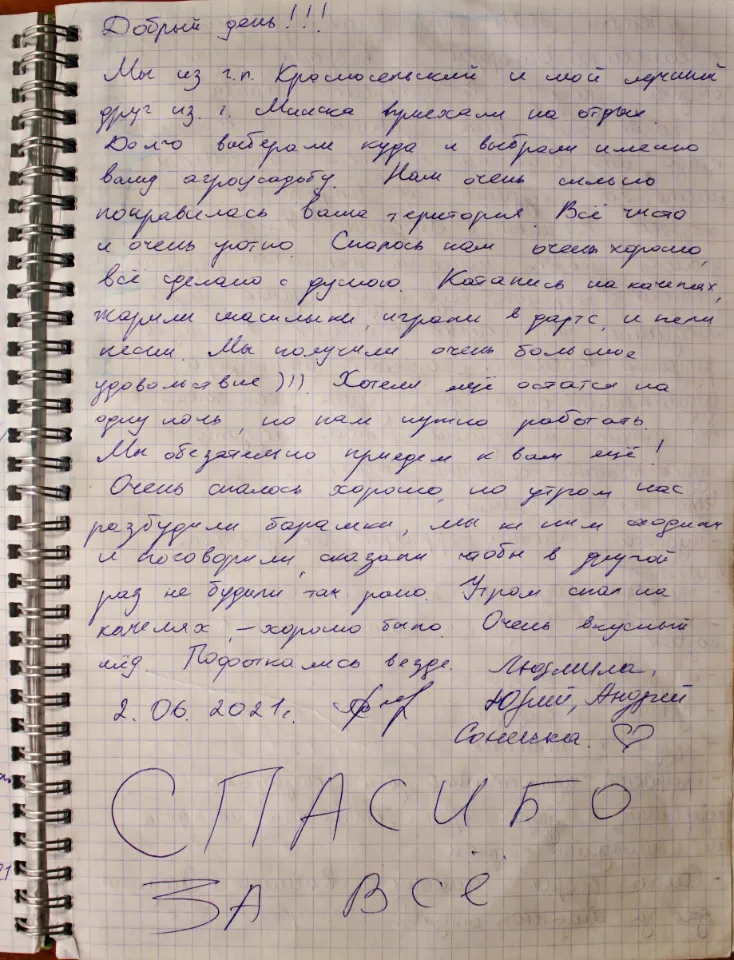 Добрый день!!!
Мы из г.п. Красносельский и мой лучший
друг из г. Минска приехали на отдых.
Долго выберали куда и выбрали именно
вашу агроусадьбу. Нам очень сильно
понравилась ваша територия. Всё чисто
и очень уютно. Спалось нам очень хорошо,
всё сделано с душою. Катались на качелях,
жарили шашлыки, играли в дартс, и пели
песни. Мы получили очень большое
удовольствие))). Хотели ещё остатся на
одну ночь, но нам нужно работать.
Мы обезательно приедем к вам ещё!
Очень спалось хорошо, но утром нас
разбудили барашки, мы к ним сходили
и поговорили, сказали чтобы в другой
раз не будили так рано. Утром спал на
качелях, – хорошо было. Очень вкусный
мёд. Пофоткались везде. Людмила,
2.06.2021г. Юрий, Андрей
Сонечка.
СПАСИБО
ЗА ВСЁ